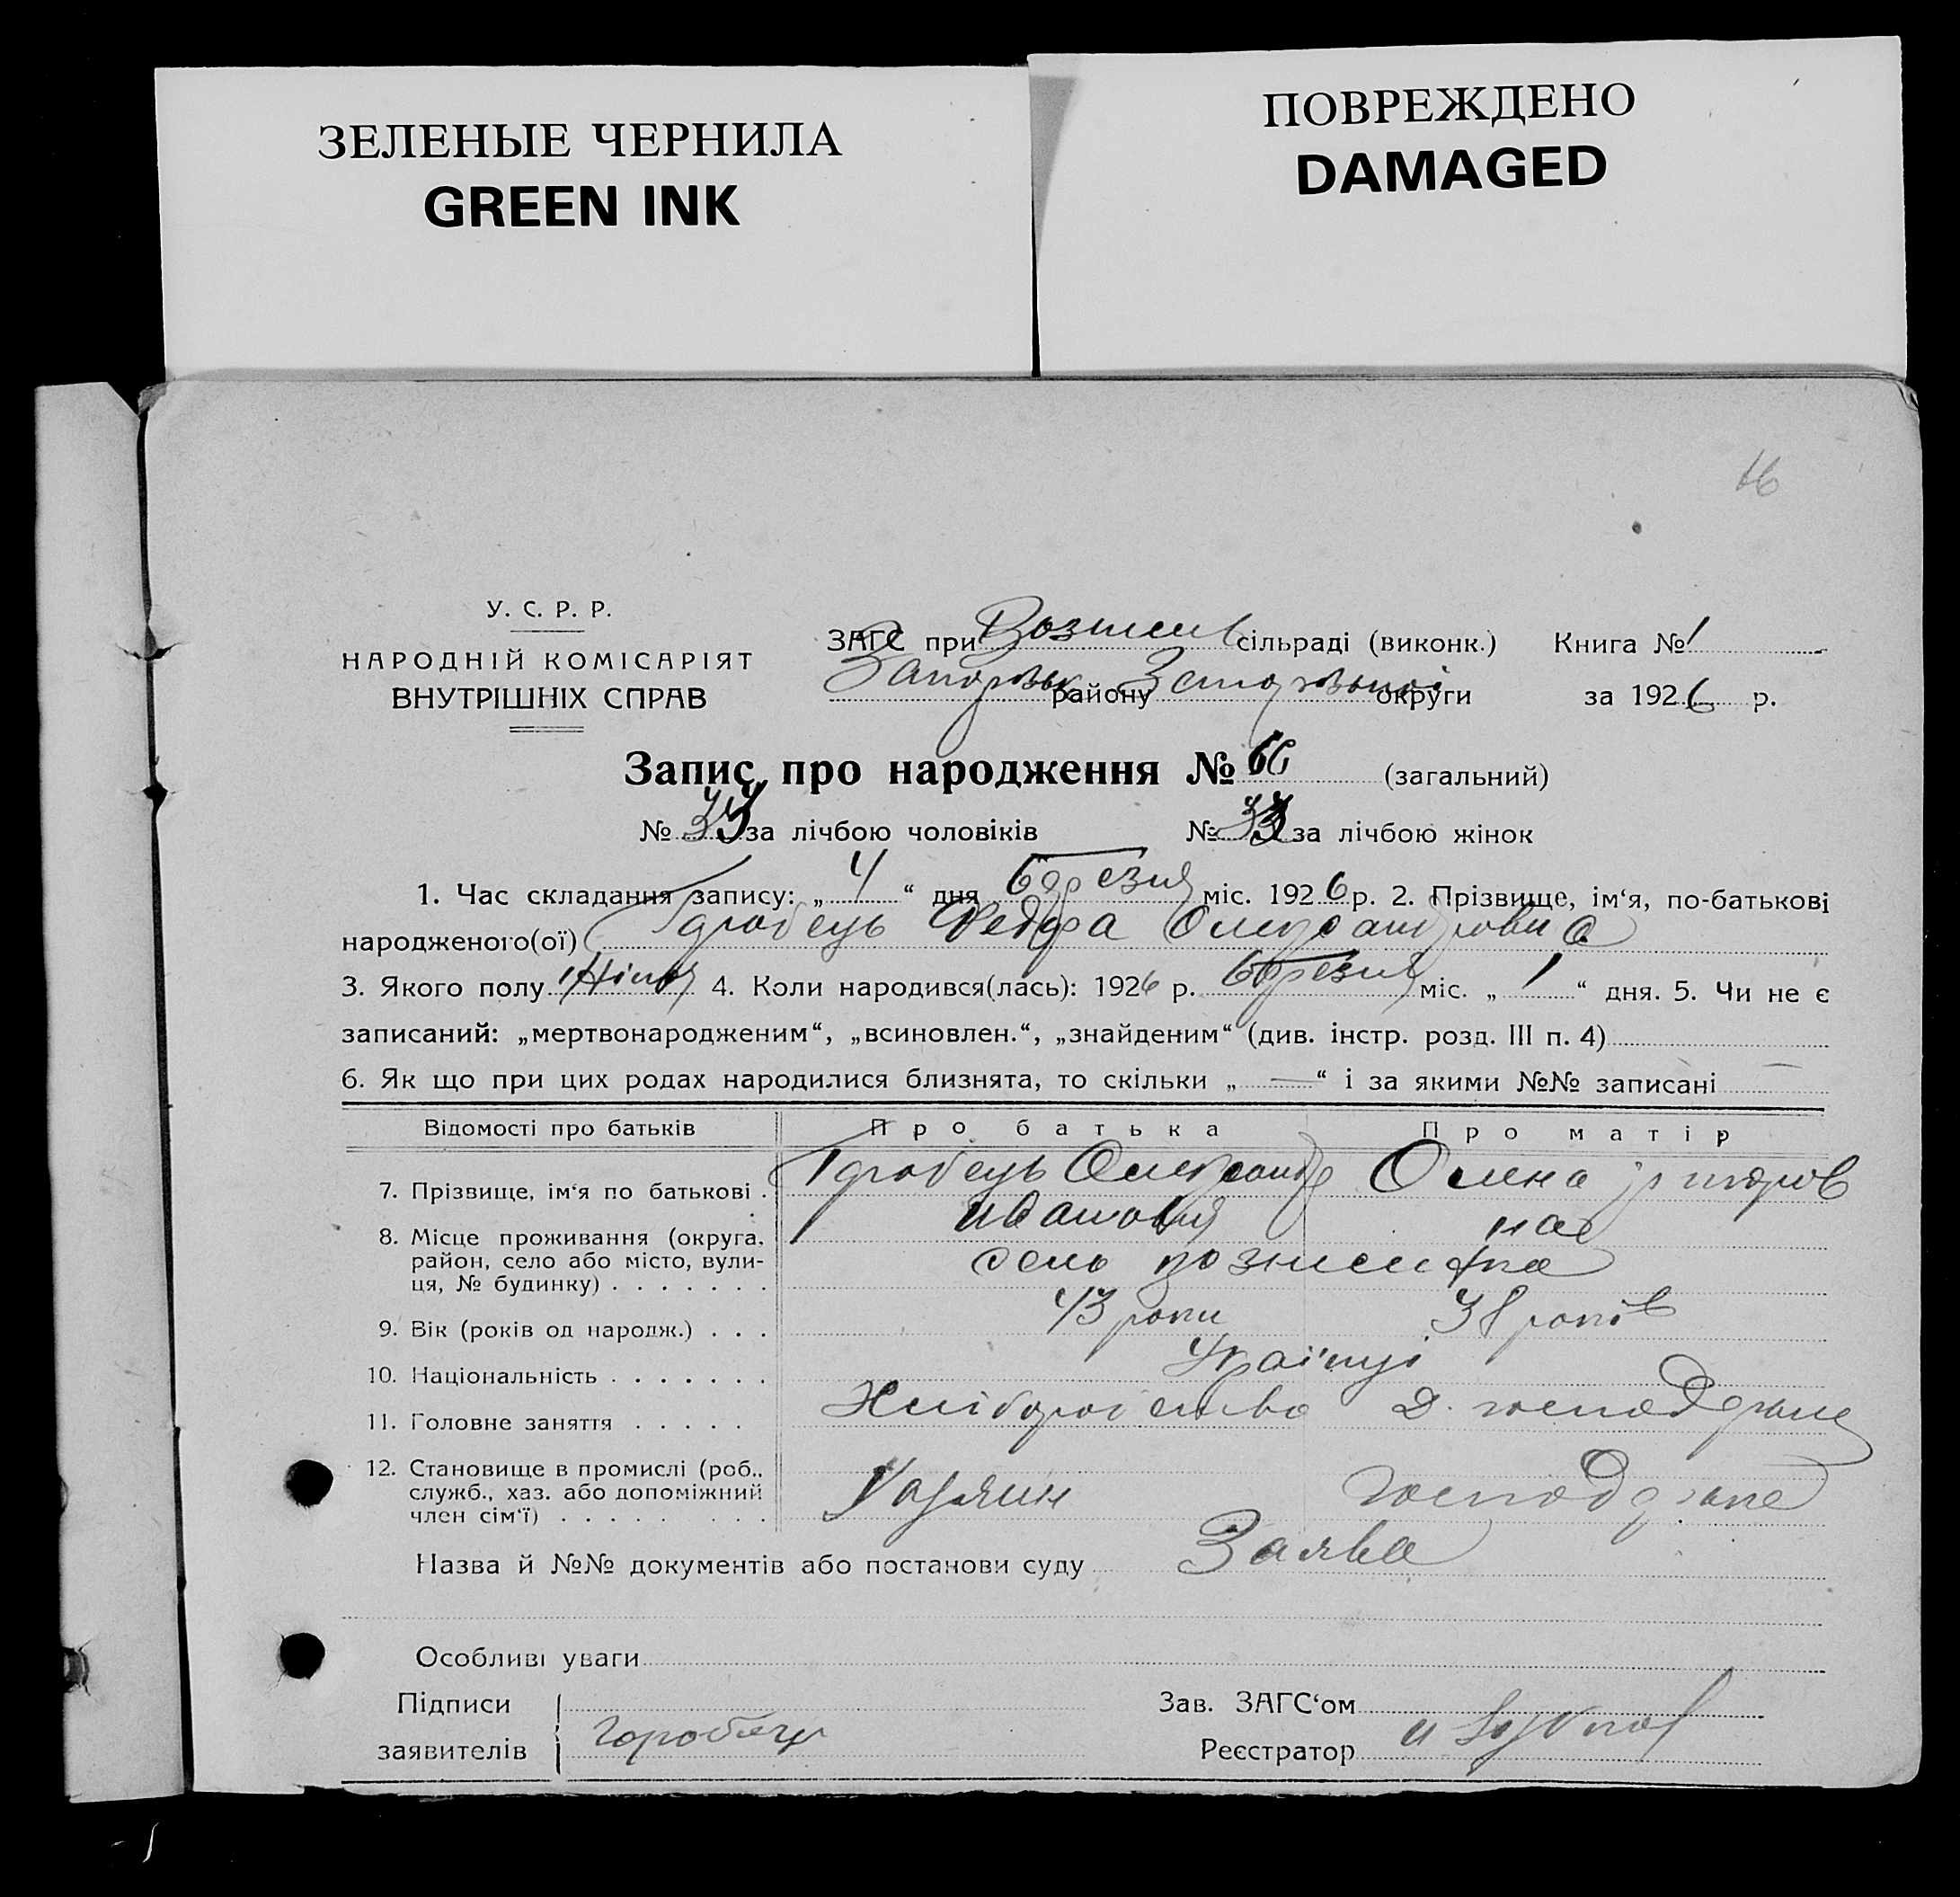 ЗЕЛЕНЫЕ ЧЕРНИЛА
GREEN INK
ПОВРЕЖДЕНО
DAMAGED
16
У. С. Р. Р.
НАРОДНІЙ КОМІСАРІЯТ
ВНУТРІШНІХ СПРАВ
ЗАГС при Вознесенс сільраді (виконк.) Книга № 1
Запорізьк району Запорізької округи за 1926 р.
Запис про народження № 66 (загальний)
№ за лічбою чоловіків № 33 за лічбою жінок
1. Час складання запису: „ 4 “ дня березня міс. 1926 р. 2. Прізвище, ім‘я, по-батькові
народженого(ої) Горобець Олександровна
3. Якого полу жіноч 4. Коли народився(лась): 1926 р. березня міс. „ 1 “ дня. 5. Чи не є
записаний: „мертвонародженим“, „всиновлен.“, „знайденим“ (див. інстр. розд. III п. 4)
6. Як що при цих родах народилися близнята, то скільки „ — “ і за якими №№ записані —
Відомості про батьків Про батька Про матір
7. Прізвище, ім‘я по батькові . Горобець Олександр Олена Григоров
Иванович на
8. Місце проживання (округа, район, село або місто, вули-ця, № будинку) . . . . . . . село Вознесенка
9. Вік (років од народж.) . . . 43 роки 38 років
10. Національність . . . . . . . Українці
11. Головне заняття . . . . . Хліборобство Д. господарка
12. Становище в промислі (роб., служб., хаз. або допоміжний член сім‘ї) . . . . . . . . Хазяин господарка
Назва й №№ документів або постанови суду Заява
Особливі уваги
Підписи
заявителів Горобець
Зав. ЗАГС‘ом
Реєстратор